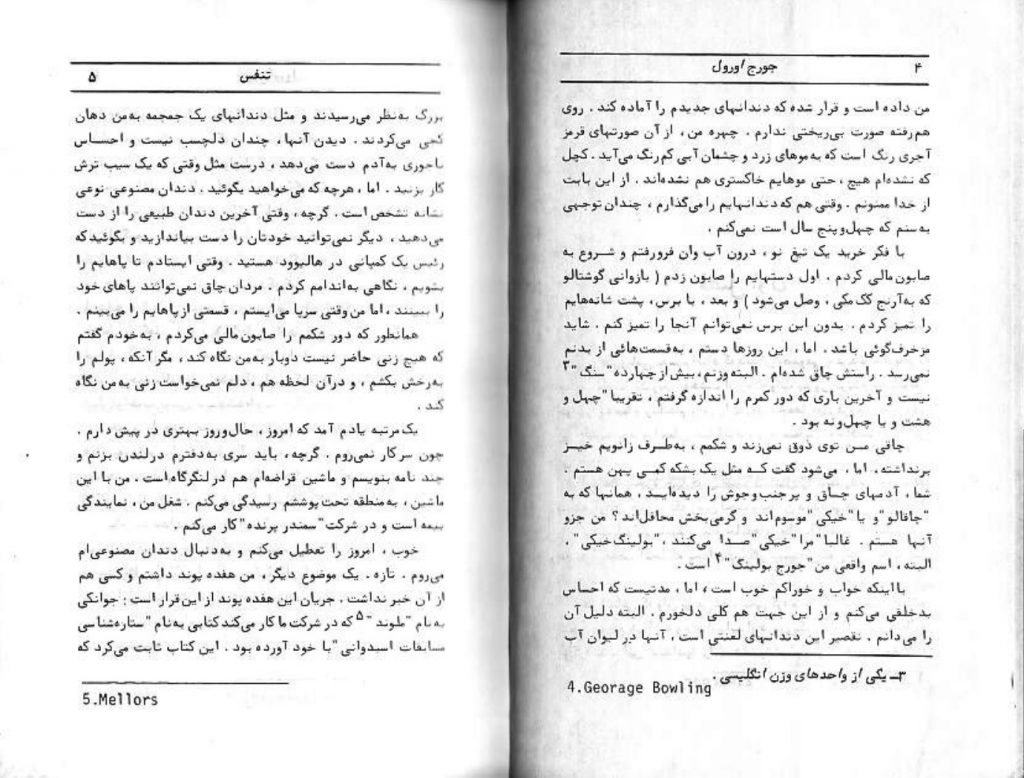 ۴
جورج اورول
من داده است و قرار شده که دندانهای جدیدم را آماده کند . روی
هم‌رفته صورت بی‌ریختی ندارم . چهره من ، از آن صورتهای قرمز
آجری رنگ است که به‌موهای زرد و چشمان آبی کم‌رنگ می‌آید . کچل
که نشده‌ام هیچ ، حتی موهایم خاکستری هم نشده‌اند . از این بابت
از خدا ممنونم . وقتی هم که دندانهایم را می‌گذارم ، چندان توجهی
به‌سنم که چهل‌وپنج سال است نمی‌کنم .
با فکر خرید یک تیغ نو ، درون آب وان فرورفتم و شروع به
صابون‌مالی کردم . اول دستهایم را صابون زدم ( بازوانی گوشتالو
که به‌آرنج کک‌مکی ، وصل می‌شود ) و بعد ، با برس ، پشت شانه‌هایم
را تمیز کردم . بدون این برس نمی‌توانم آنجا را تمیز کنم . شاید
مزخرف‌گوئی باشد . اما ، این روزها دستم ، به‌قسمت‌هائی از بدنم
نمی‌رسد . راستش چاق شده‌ام . البته وزنم ، بیش از چهارده "سنگ"۳
نیست و آخرین باری که دور کمرم را اندازه گرفتم ، تقریبا "چهل و
هشت و یا چهل‌ونه بود .
چاقی من توی ذوق نمی‌زند و شکمم ، به‌طرف زانویم خیز
برنداشته . اما ، می‌شود گفت که مثل یک بشکه کمی پهن هستم .
شما ، آدمهای چاق و پرجنب‌وجوش را دیده‌اید ، همانها که به
"چاقالو" و یا "خیکی" موسوم‌اند و گرمی‌بخش محافل‌اند ؟ من جزو
آنها هستم . غالبا "مرا "خیکی" صدا می‌کنند ، "بولینگ‌خیکی" .
البته ، اسم واقعی من "جورج بولینگ"۴ است .
بااینکه خواب و خوراکم خوب است ، اما ، مدتیست که احساس
بدخلقی می‌کنم و از این جهت هم کلی دلخورم . البته دلیل آن
را می‌دانم . تقصیر این دندانهای لعنتی است . آنها در لیوان آب
۳ـ یکی از واحدهای وزن انگلیسی .
4.Georage Bowling
تنفس
۵
بزرگ به‌نظر می‌رسیدند و مثل دندانهای یک جمجمه به‌من دهان
کجی می‌کردند . دیدن آنها ، چندان دلچسب نیست و احساس
ناجوری به‌آدم دست می‌دهد ، درست مثل وقتی که یک سیب ترش
گاز بزنید . اما ، هرچه که می‌خواهید بگوئید . دندان مصنوعی نوعی
نشانه تشخص است . گرچه ، وقتی آخرین دندان طبیعی را از دست
می‌دهید ، دیگر نمی‌توانید خودتان را دست بیاندازید و بگوئیدکه
رئیس یک کمپانی در هالیوود هستید . وقتی ایستادم تا پاهایم را
بشویم ، نگاهی به‌اندامم کردم . مردان چاق نمی‌توانند پاهای خود
را ببینند ، اما من وقتی سرپا می‌ایستم ، قسمتی از پاهایم را می‌بینم .
همانطور که دور شکمم را صابون‌مالی می‌کردم ، به‌خودم گفتم
که هیچ زنی حاضر نیست دوبار به‌من نگاه کند ، مگر آنکه ، پولم را
به‌رخش بکشم ، و درآن لحظه هم ، دلم نمی‌خواست زنی به‌من نگاه
کند .
یک‌مرتبه یادم آمد که امروز ، حال‌وروز بهتری در پیش دارم .
چون سر کار نمی‌روم . گرچه ، باید سری به‌دفترم درلندن بزنم و
چند نامه بنویسم و ماشین قراضه‌ام هم در لنگرگاه است . من با این
ماشین ، به‌منطقه تحت پوششم رسیدگی می‌کنم . شغل من ، نمایندگی
بیمه است و در شرکت "سمندر پرنده" کار می‌کنم .
خوب ، امروز را تعطیل می‌کنم و به‌دنبال دندان مصنوعی‌ام
می‌روم . تازه . یک موضوع دیگر ، من هفده پوند داشتم و کسی هم
از آن خبر نداشت . جریان این هفده پوند از این قرار است : جوانکی
به‌نام "ملوند"۵ که در شرکت ما کار می‌کند کتابی به‌نام "ستاره‌شناسی
مسابقات اسبدوانی" با خود آورده بود . این کتاب ثابت می‌کرد که
5.Mellors